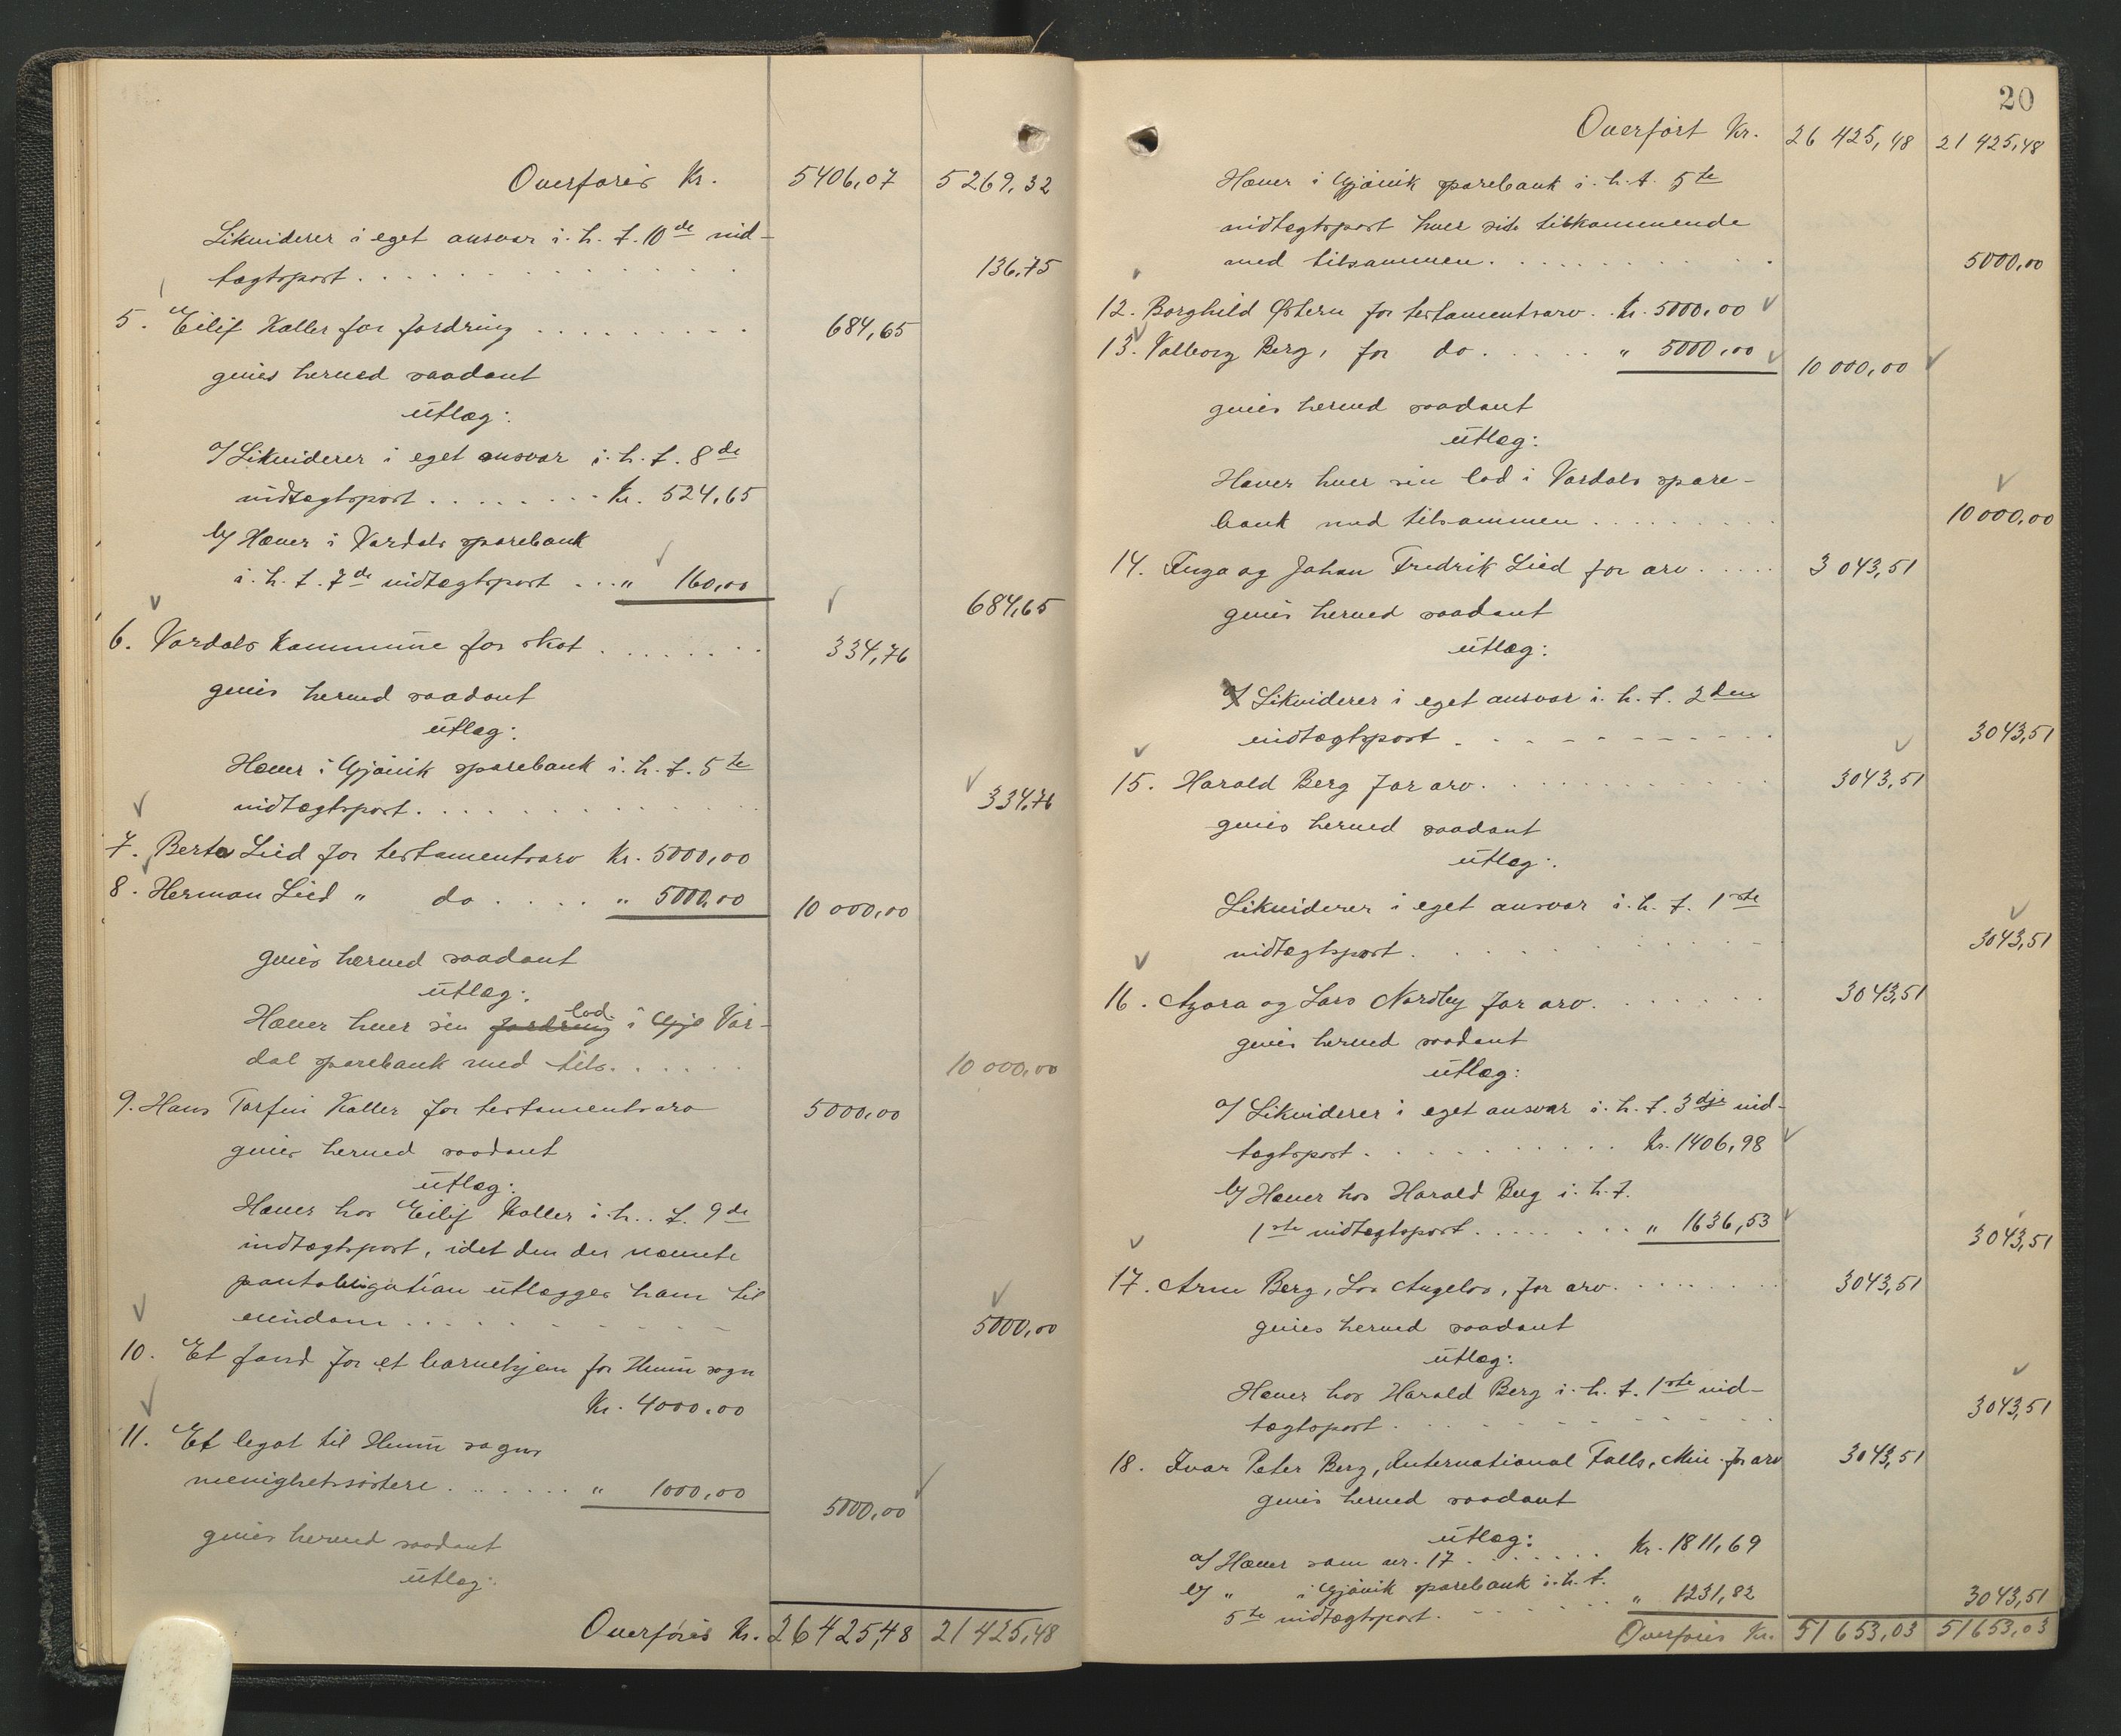 Overføres Kr. 5406,07 5269,32
Likviderer i eget ansvar i. h. t. 10de ind-
tægtspost . . . . . 136,75
5. Eilif Koller for fordring . . . . . 684,65
gives herved saadant
utlæg:
a/ Likviderer i eget ansvar i. h. t. 8de
indtægtspost . . . . . Kr. 524,65
b/ Hæver i Vardals sparebank
i. h. t. 7de indtægtspost . . . " 160,00 684,65
6. Vardals kommune for skat . . . . . 334,76
gives herved saadant
utlæg:
Hæver i Gjøvik sparebank i. h. t. 5te
indtægtspost . . . . . 334,76
7. Berta Lied for testamentsarv Kr. 5000,00
8. Herman Lied " do . . . . " 5000,00 10 000,00
gives herved saadant
utlæg:
Hæver hver sin fordring lod i Gjø Var-
dal sparebank med tils. . . . . 10 000,00
9. Hans Torfin Koller for testamentsarv 5000,00
gives herved saadant
utlæg:
Hæves hos Eilif Koller i. h. t. 9de
indtægtspost, idet den der nævnte
pantobligation utlægges ham til
eiendom . . . . . 5000,00
10. Et fond for et barnehjem for Hunn sogn
Kr. 4000,00
11. Et legat til Hunn sogns
menighetssøstere . . . . . " 1000,00 5000,00
gives herved saadant
utlæg:
Overføres Kr. 26425,48 21425,48
20
Overført Kr. 26 425,48 21 425,48
Hæver i Gjøvik sparebank i. h. t. 5te
indtægtspost hver sit tilkommende
med tilsammen . . . . . 5000,00
12. Borghild Østern for testamentsarv . Kr. 5000,00
13. Valborg Berg, for do . . . . . " 5000,00 10 000,00
gives herved saadant
utlæg:
Hæver hver sin lod i Vardals spare-
bank med tilsammen . . . . . 10 000,00
14. Inga og Johan Fredrik Lied for arv . . . . . 3 043,51
gives herved saadant
utlæg:
a/ Likviderer i eget ansvar i. h. t. 2den
indtægtspost . . . . . 3043,51
15. Harald Berg for arv . . . . . 3043,51
gives herved saadant
utlæg:
Likviderer i eget ansvar i. h. t. 1ste
indtægtspost . . . . . 3043,51
16. Agora og Lars Nordby for arv . . . . . 3043,51
gives herved saadant
utlæg:
a/ Likviderer i eget ansvar i. h. t. 3dje ind-
tægtspost . . . . . Kr. 1406,98
b/ Hæver hos Harald Berg i. h. t.
1ste indtægtspost . . . . . " 1636,53 3043,51
17. Arne Berg, Los Angelos, for arv . . . . . 3043,51
gives herved saadant
utlæg:
Hæver hos Harald Berg i. h. t. 1ste ind-
tægtspost . . . . . 3043,51
18. Ivar Peter Berg, International Falls, Min. for arv 3043,51
gives herved saadant
utlæg:
a/ Hæver som nr. 17 . . . . . Kr. 1811,69
b/ " i Gjøvik sparebank i. h. t.
5te indtægtspost . . . . . " 1231,82 3043,51
Overføres Kr. 51 653,03 51653,03